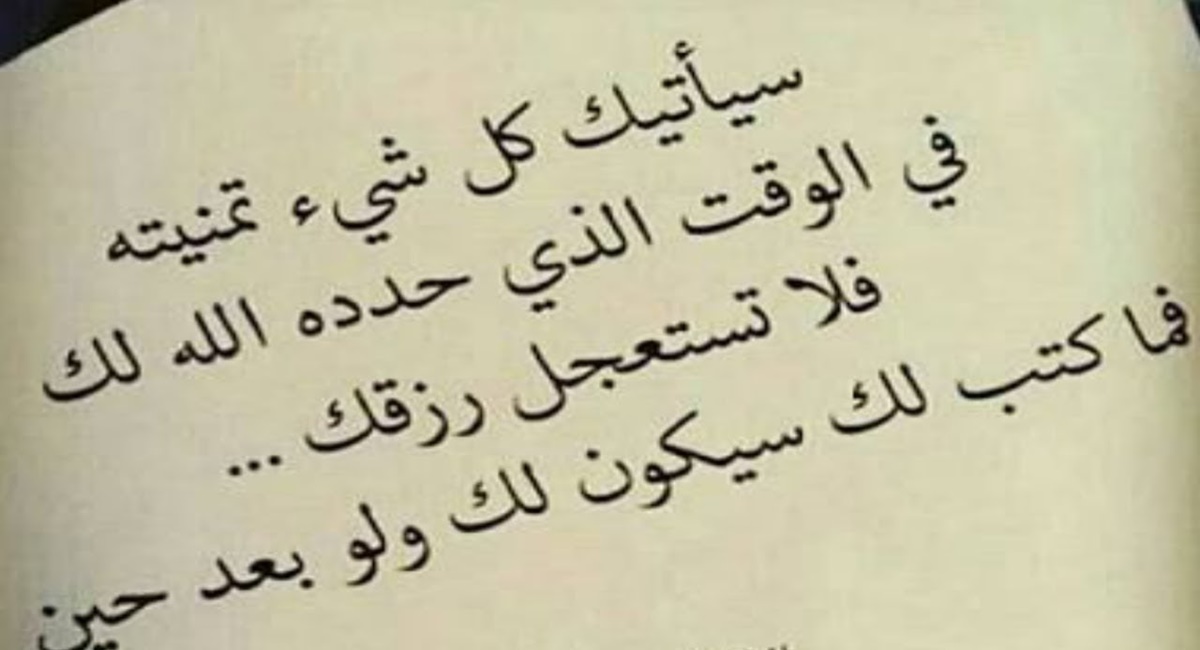 سيأتيك كل شيء تمنيته
في الوقت الذي حدده الله لك
فلا تستعجل رزقك ...
فما كتب لك سيكون لك ولو بعد حين